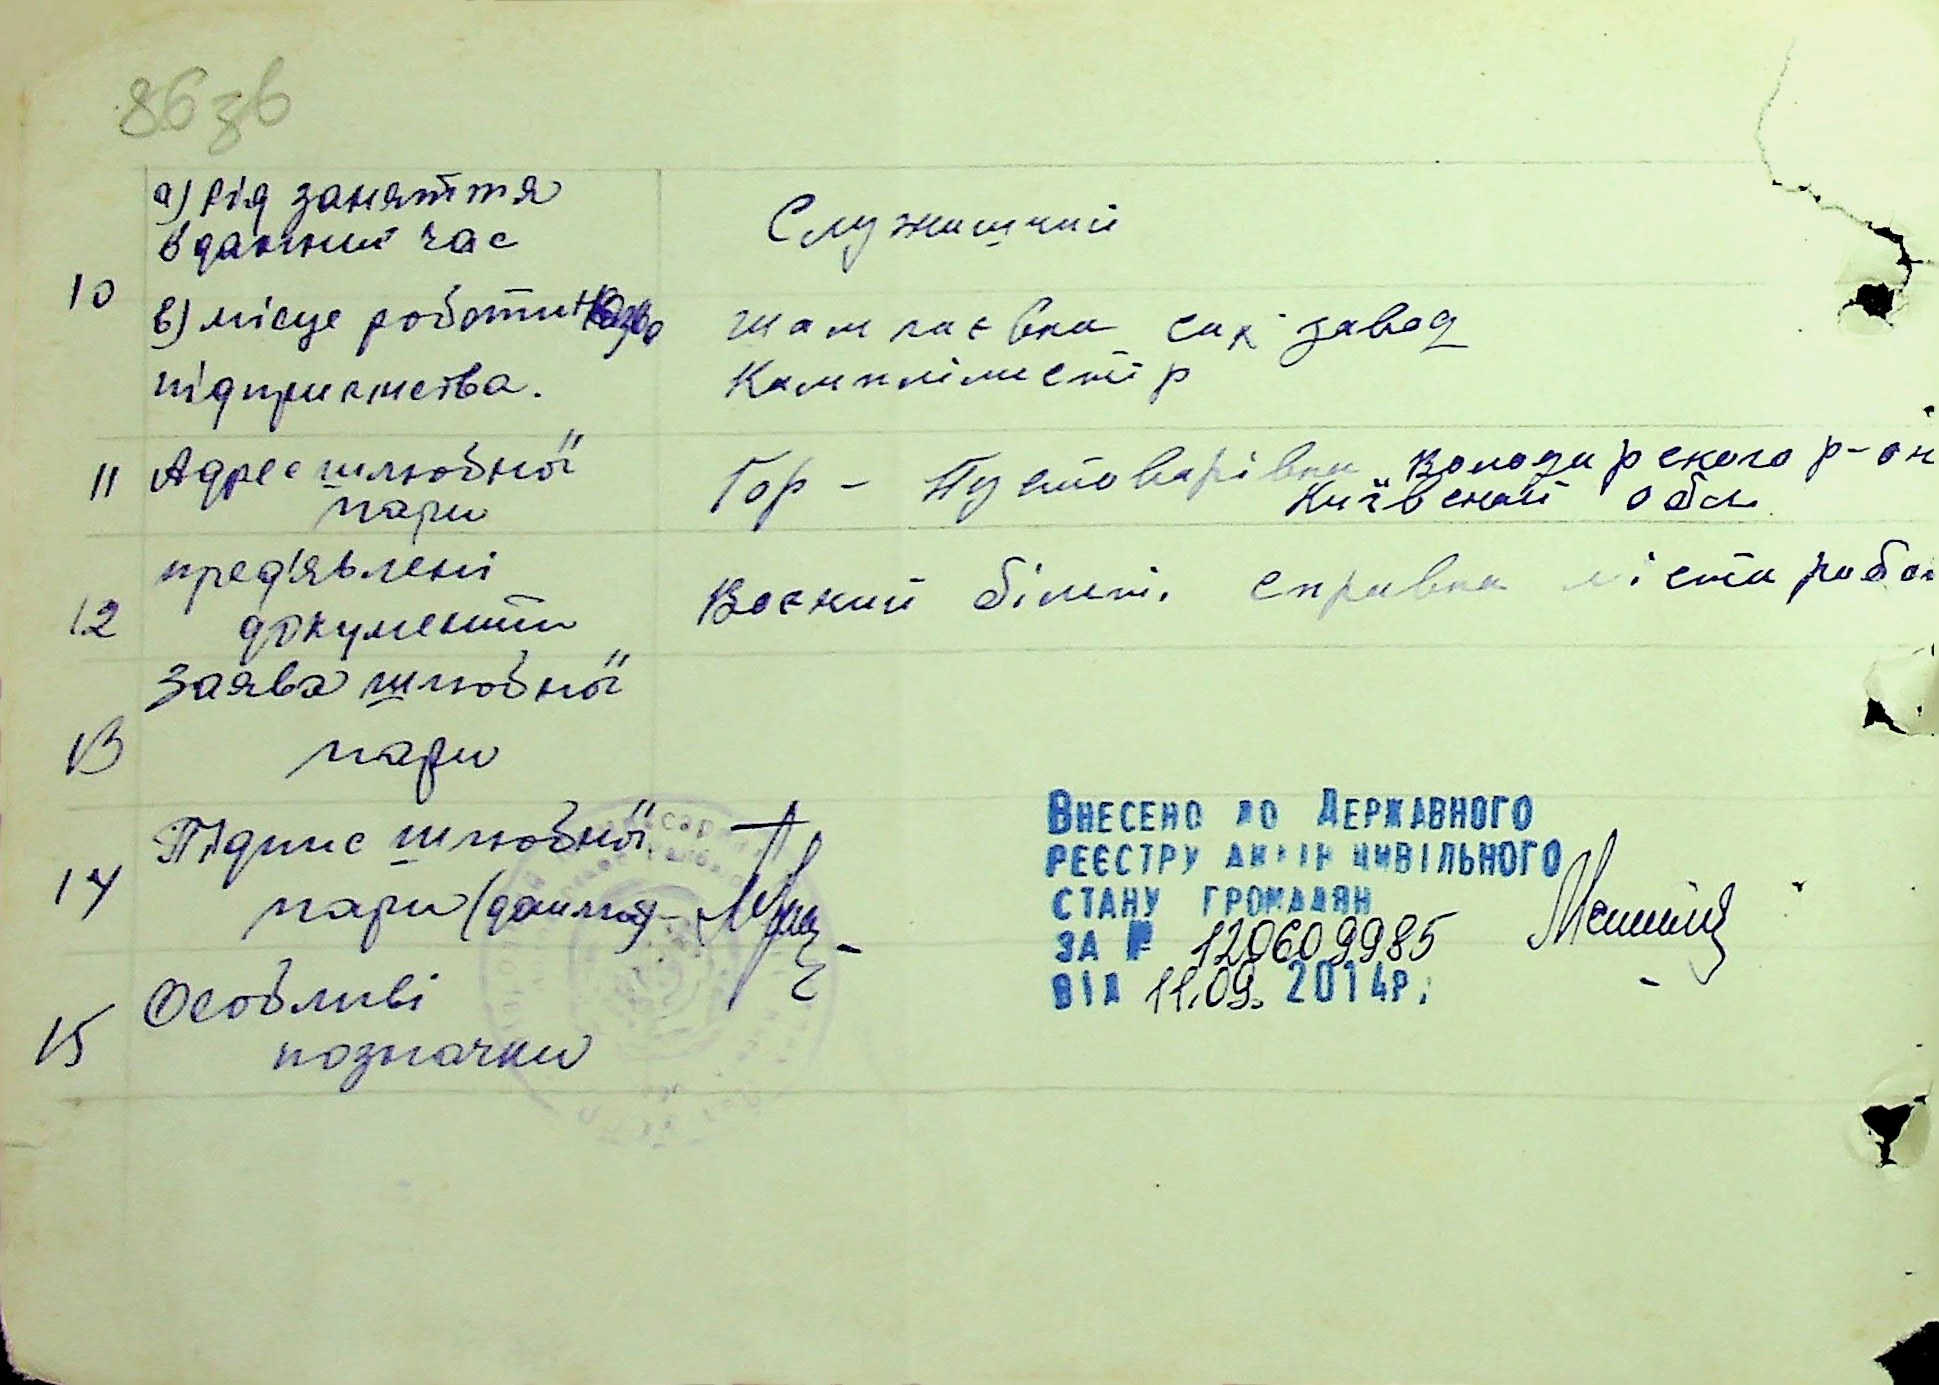 86зв
а) рід заняття
в данний час
Служищий
10
в) місце роботи назва
підприємства.
Шамраєвка сах завод
11
Адрес шлюбної
пари
Гор - Пустоварівка Володарського р-он
Київської обл
12
пред'явлені
документи
Воєний білет. справка міста робот
13
Заява шлюбної
пари
14
Підпис шлюбної
пари
15
Особливі
позначки
ВНЕСЕНО ДО ДЕРЖАВНОГО
РЕЄСТРУ АКТІВ ЦИВІЛЬНОГО
СТАНУ ГРОМАДЯН
ЗА № 120609985
ВІД 11.09. 2014р.